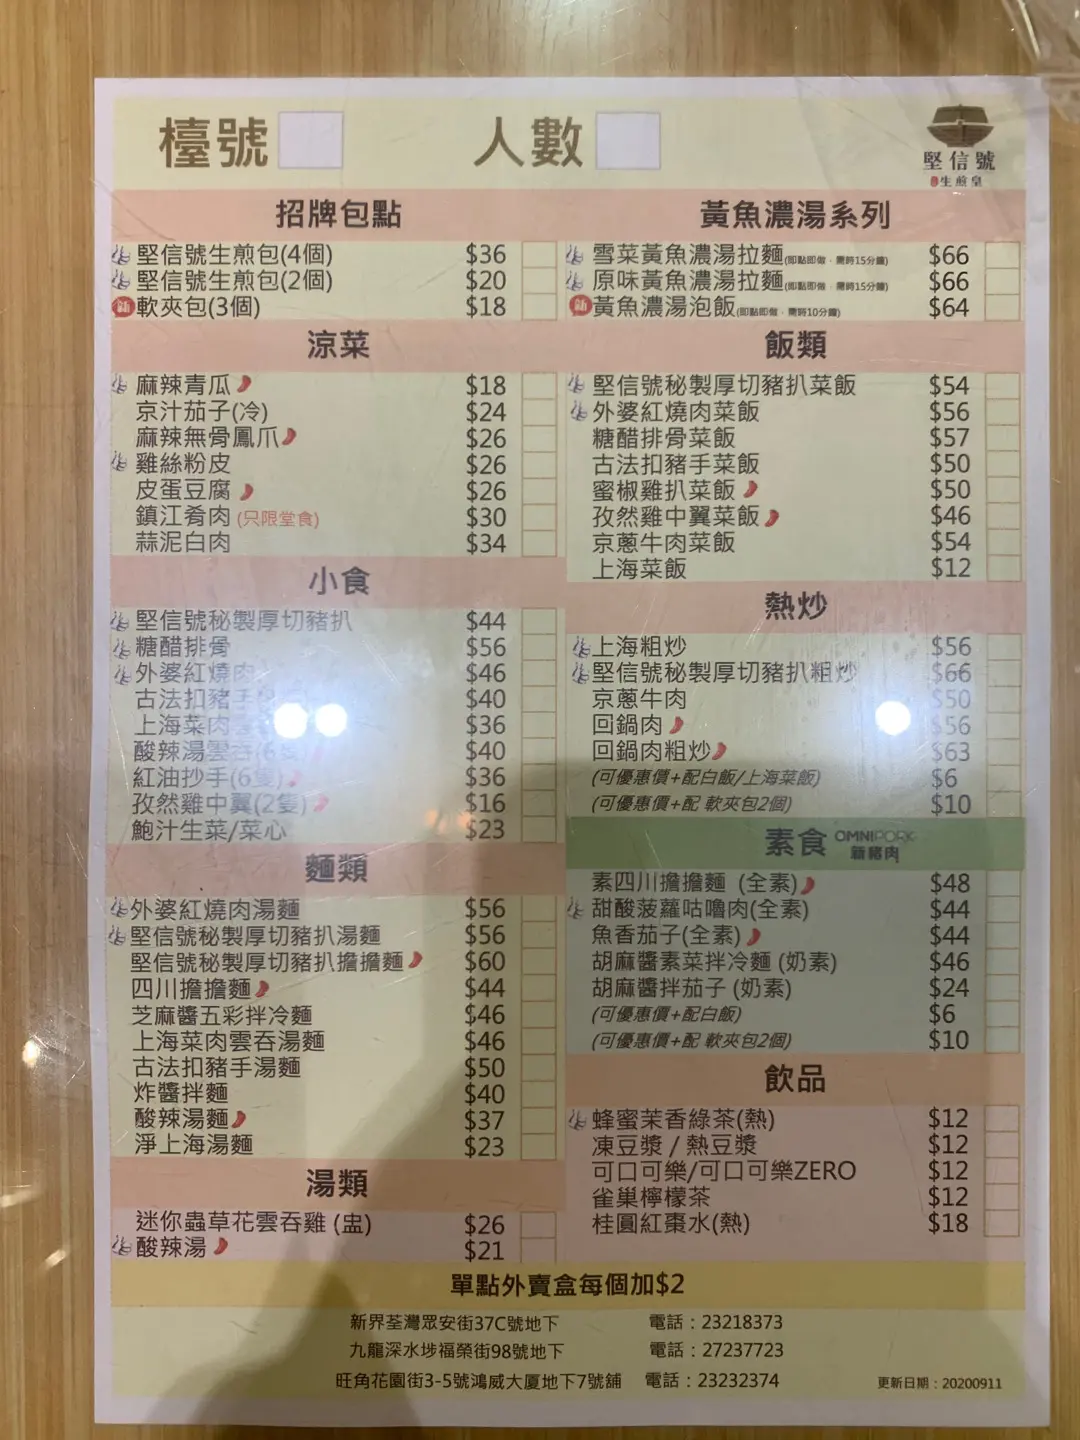 檯號
人數
堅信號
生煎皇
招牌包點
堅信號生煎包(4個) $36
堅信號生煎包(2個) $20
新 軟夾包(3個) $18
涼菜
麻辣青瓜 $18
京汁茄子(冷) $24
麻辣無骨鳳爪 $26
雞絲粉皮 $26
皮蛋豆腐 $26
鎮江肴肉 (只限堂食) $30
蒜泥白肉 $34
小食
堅信號秘製厚切豬扒 $44
糖醋排骨 $56
外婆紅燒肉 $46
古法扣豬手 $40
上海菜肉雲 $36
酸辣湯雲吞(6隻) $40
紅油抄手(6隻) $36
孜然雞中翼(2隻) $16
鮑汁生菜/菜心 $23
麵類
外婆紅燒肉湯麵 $56
堅信號秘製厚切豬扒湯麵 $56
堅信號秘製厚切豬扒擔擔麵 $60
四川擔擔麵 $44
芝麻醬五彩拌冷麵 $46
上海菜肉雲吞湯麵 $46
古法扣豬手湯麵 $50
炸醬拌麵 $40
酸辣湯麵 $37
淨上海湯麵 $23
湯類
迷你蟲草花雲吞雞 (盅) $26
酸辣湯 $21
黃魚濃湯系列
雪菜黃魚濃湯拉麵(即點即做，需時15分鐘) $66
原味黃魚濃湯拉麵(即點即做，需時15分鐘) $66
新 黃魚濃湯泡飯(即點即做，需時10分鐘) $64
飯類
堅信號秘製厚切豬扒菜飯 $54
外婆紅燒肉菜飯 $56
糖醋排骨菜飯 $57
古法扣豬手菜飯 $50
蜜椒雞扒菜飯 $50
孜然雞中翼菜飯 $46
京蔥牛肉菜飯 $54
上海菜飯 $12
熱炒
上海粗炒 $56
堅信號秘製厚切豬扒粗炒 $66
京蔥牛肉 $50
回鍋肉 $56
回鍋肉粗炒 $63
(可優惠價+配白飯/上海菜飯) $6
(可優惠價+配 軟夾包2個) $10
素食 OMNIPORK 新豬肉
素四川擔擔麵 (全素) $48
甜酸菠蘿咕嚕肉(全素) $44
魚香茄子(全素) $44
胡麻醬素菜拌冷麵 (奶素) $46
胡麻醬拌茄子 (奶素) $24
(可優惠價+配白飯) $6
(可優惠價+配 軟夾包2個) $10
飲品
蜂蜜茉香綠茶(熱) $12
凍豆漿 / 熱豆漿 $12
可口可樂/可口可樂ZERO $12
雀巢檸檬茶 $12
桂圓紅棗水(熱) $18
單點外賣盒每個加$2
新界荃灣眾安街37C號地下 電話：23218373
九龍深水埗福榮街98號地下 電話：27237723
旺角花園街3-5號鴻威大廈地下7號舖 電話：23232374
更新日期：20200911